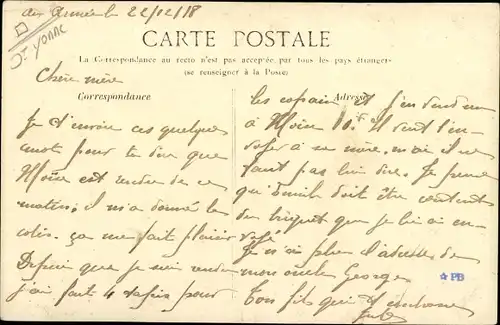 aux Armées le 22/12/18
St Yonne
CARTE POSTALE
La Correspondance au recto n'est pas acceptée par tous les pays étrangers
(se renseigner à la Poste)
Chère mère
Correspondance
Adresse
Je t'envoie ces quelques
mot pour te dire que
est rendu de ce
matin, il m'a donné les
colis. ça me fait plaisir
Depuis que je suis rendu
j'ai fait 4 tapis pour
les copain et j'en
à 10f Il vient l'en
à sa mère, mais il ne
faut pas lui dire. Je pense
qu' doit être content
du briquet que je lui ai en
voyé
Je n'ai plus l'adresse de
mon oncle Georges
☆PB
Ton fils qui t'embrasse